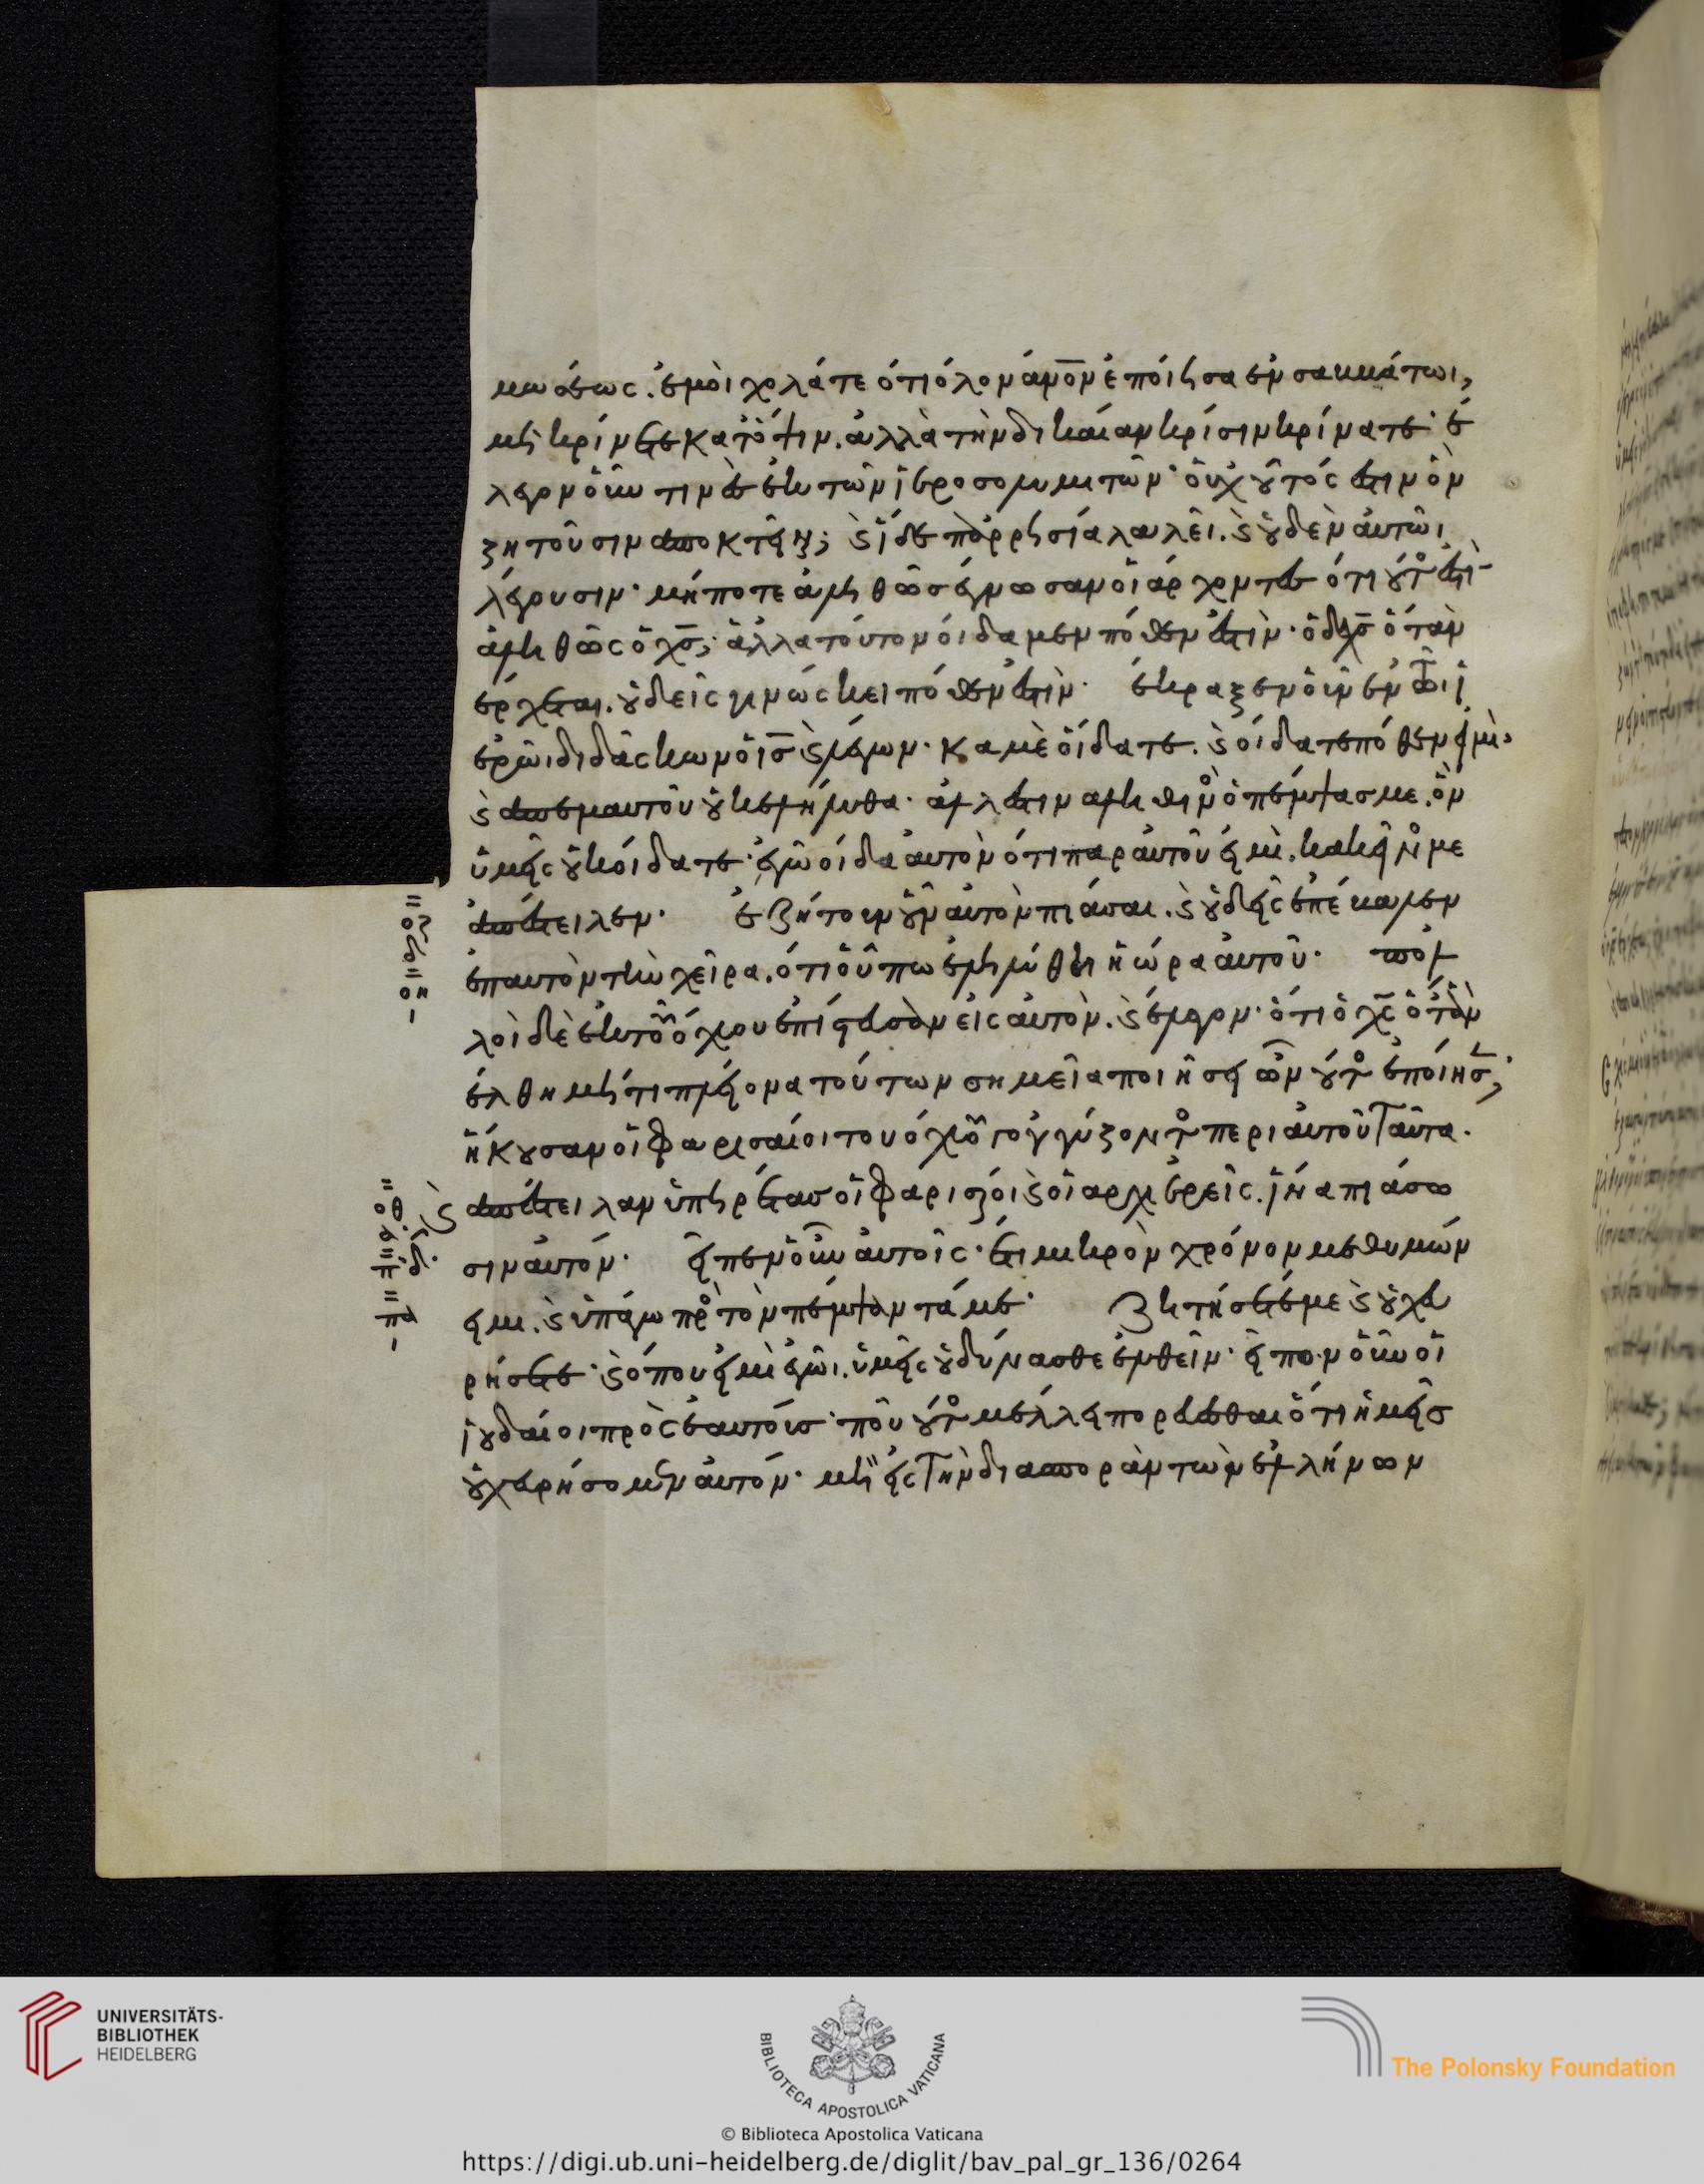 μωσέως. ἐμοὶ χολᾶτε ὅτι ὅλον ἄνο̅ν ἐποίησα ἐν σαββάτωι;
μὴ κρίνετε κατόψιν. ἀλλὰ τὴν δικαίαν κρίσιν κρίνατε· ἔ
λεγον οὖν τινὲς ἐκ τῶν ἱεροσολυμιτῶν· οὐχ οὗτός ἐστιν ὃν
ζητοῦσιν ἀποκτεῖναι; καὶ ἴδε παρρησία λαλεῖ. καὶ οὐδὲν αὐτῶι
λέγουσιν· μήποτε ἀληθῶς ἔγνωσαν οἱ ἄρχοντες ὅτι οὗτος ἐστὶ
ἀληθῶς ὁ χς̅; ἀλλὰ τοῦτον οἴδαμεν πόθεν ἐστὶν· ὁ δὲ χς̅ ὅταν
ἔρχεται. οὐδεὶς γινώσκει πόθεν ἐστὶν· ἔκραξεν οὖν ἐν τῶι ἱ
ερῶι διδάσκων ὁ ις̅ καὶ λέγων· καμὲ οἴδατε. καὶ οἴδατε πόθεν εἰμὶ·
καὶ ἀπεμαυτοῦ οὐκ ἐλήλυθα· ἀλλ ἔστιν ἀληθινὸς ὁ πέμψας με. ὃν
ὑμεῖς οὐκ οἴδατε· ἐγὼ οἶδα αὐτὸν ὅτι παρ αὐτοῦ εἰμὶ. κακεῖνός με
οζ
ἀπέστειλεν. ἐζήτουν οὖν αὐτὸν πιάσαι. καὶ οὐδεὶς ἐπέβαλεν
οη
ἐπαυτὸν τὴν χεῖρα. ὅτι οὔπω ἐληλύθει ἡ ὥρα αὐτοῦ· πολ
λοὶ δὲ ἐκ τοῦ ὄχλου ἐπίστευσαν εἰς αὐτὸν. καὶ ἔλεγον· ὅτι ὁ χς̅ ὅταν
ἔλθη μήτι πλείονα τούτων σημεῖα ποιήσει ὧν οὗτος ἐποίησεν;
ἤκουσαν οἱ φαρισαίοι του ὄχλου γογγύζοντος περι αὐτοῦ ταῦτα.
οθ
καὶ ἀπέστειλαν ὑπηρέτας οἱ φαρισαίοι καὶ οἱ αρχιερεῖς. ἵνα πιάσω
π
σιν αὐτόν· εἶπεν οὖν αὐτοῖς· ἔτι μικρὸν χρόνον μεθ υμών
πα
εἰμι. καὶ ὑπάγω πρὸς τὸν πέμψαντά με· ζητήσετέ με καὶ οὐχ εὑ
ρήσετε· καὶ ὅπου εἰμὶ ἐγὼι. ὑμεῖς οὐ δύνασθε ἐλθεῖν· εἶπον οὖν οἱ
ἰουδαίοι πρὸς ἑαυτούς· ποῦ οὗτος μέλλει πορεύεσθαι ὅτι ἡμεῖς
οὐχ εὑρήσομεν αὐτόν· μὴ εἰς τὴν διασπορὰν τὼν ἑλλήνων
UNIVERSITÄTS-
BIBLIOTHEK
HEIDELBERG
BIBLIOTECA APOSTOLICA VATICANA
The Polonsky Foundation
© Biblioteca Apostolica Vaticana
https://digi.ub.uni-heidelberg.de/diglit/bav_pal_gr_136/0264